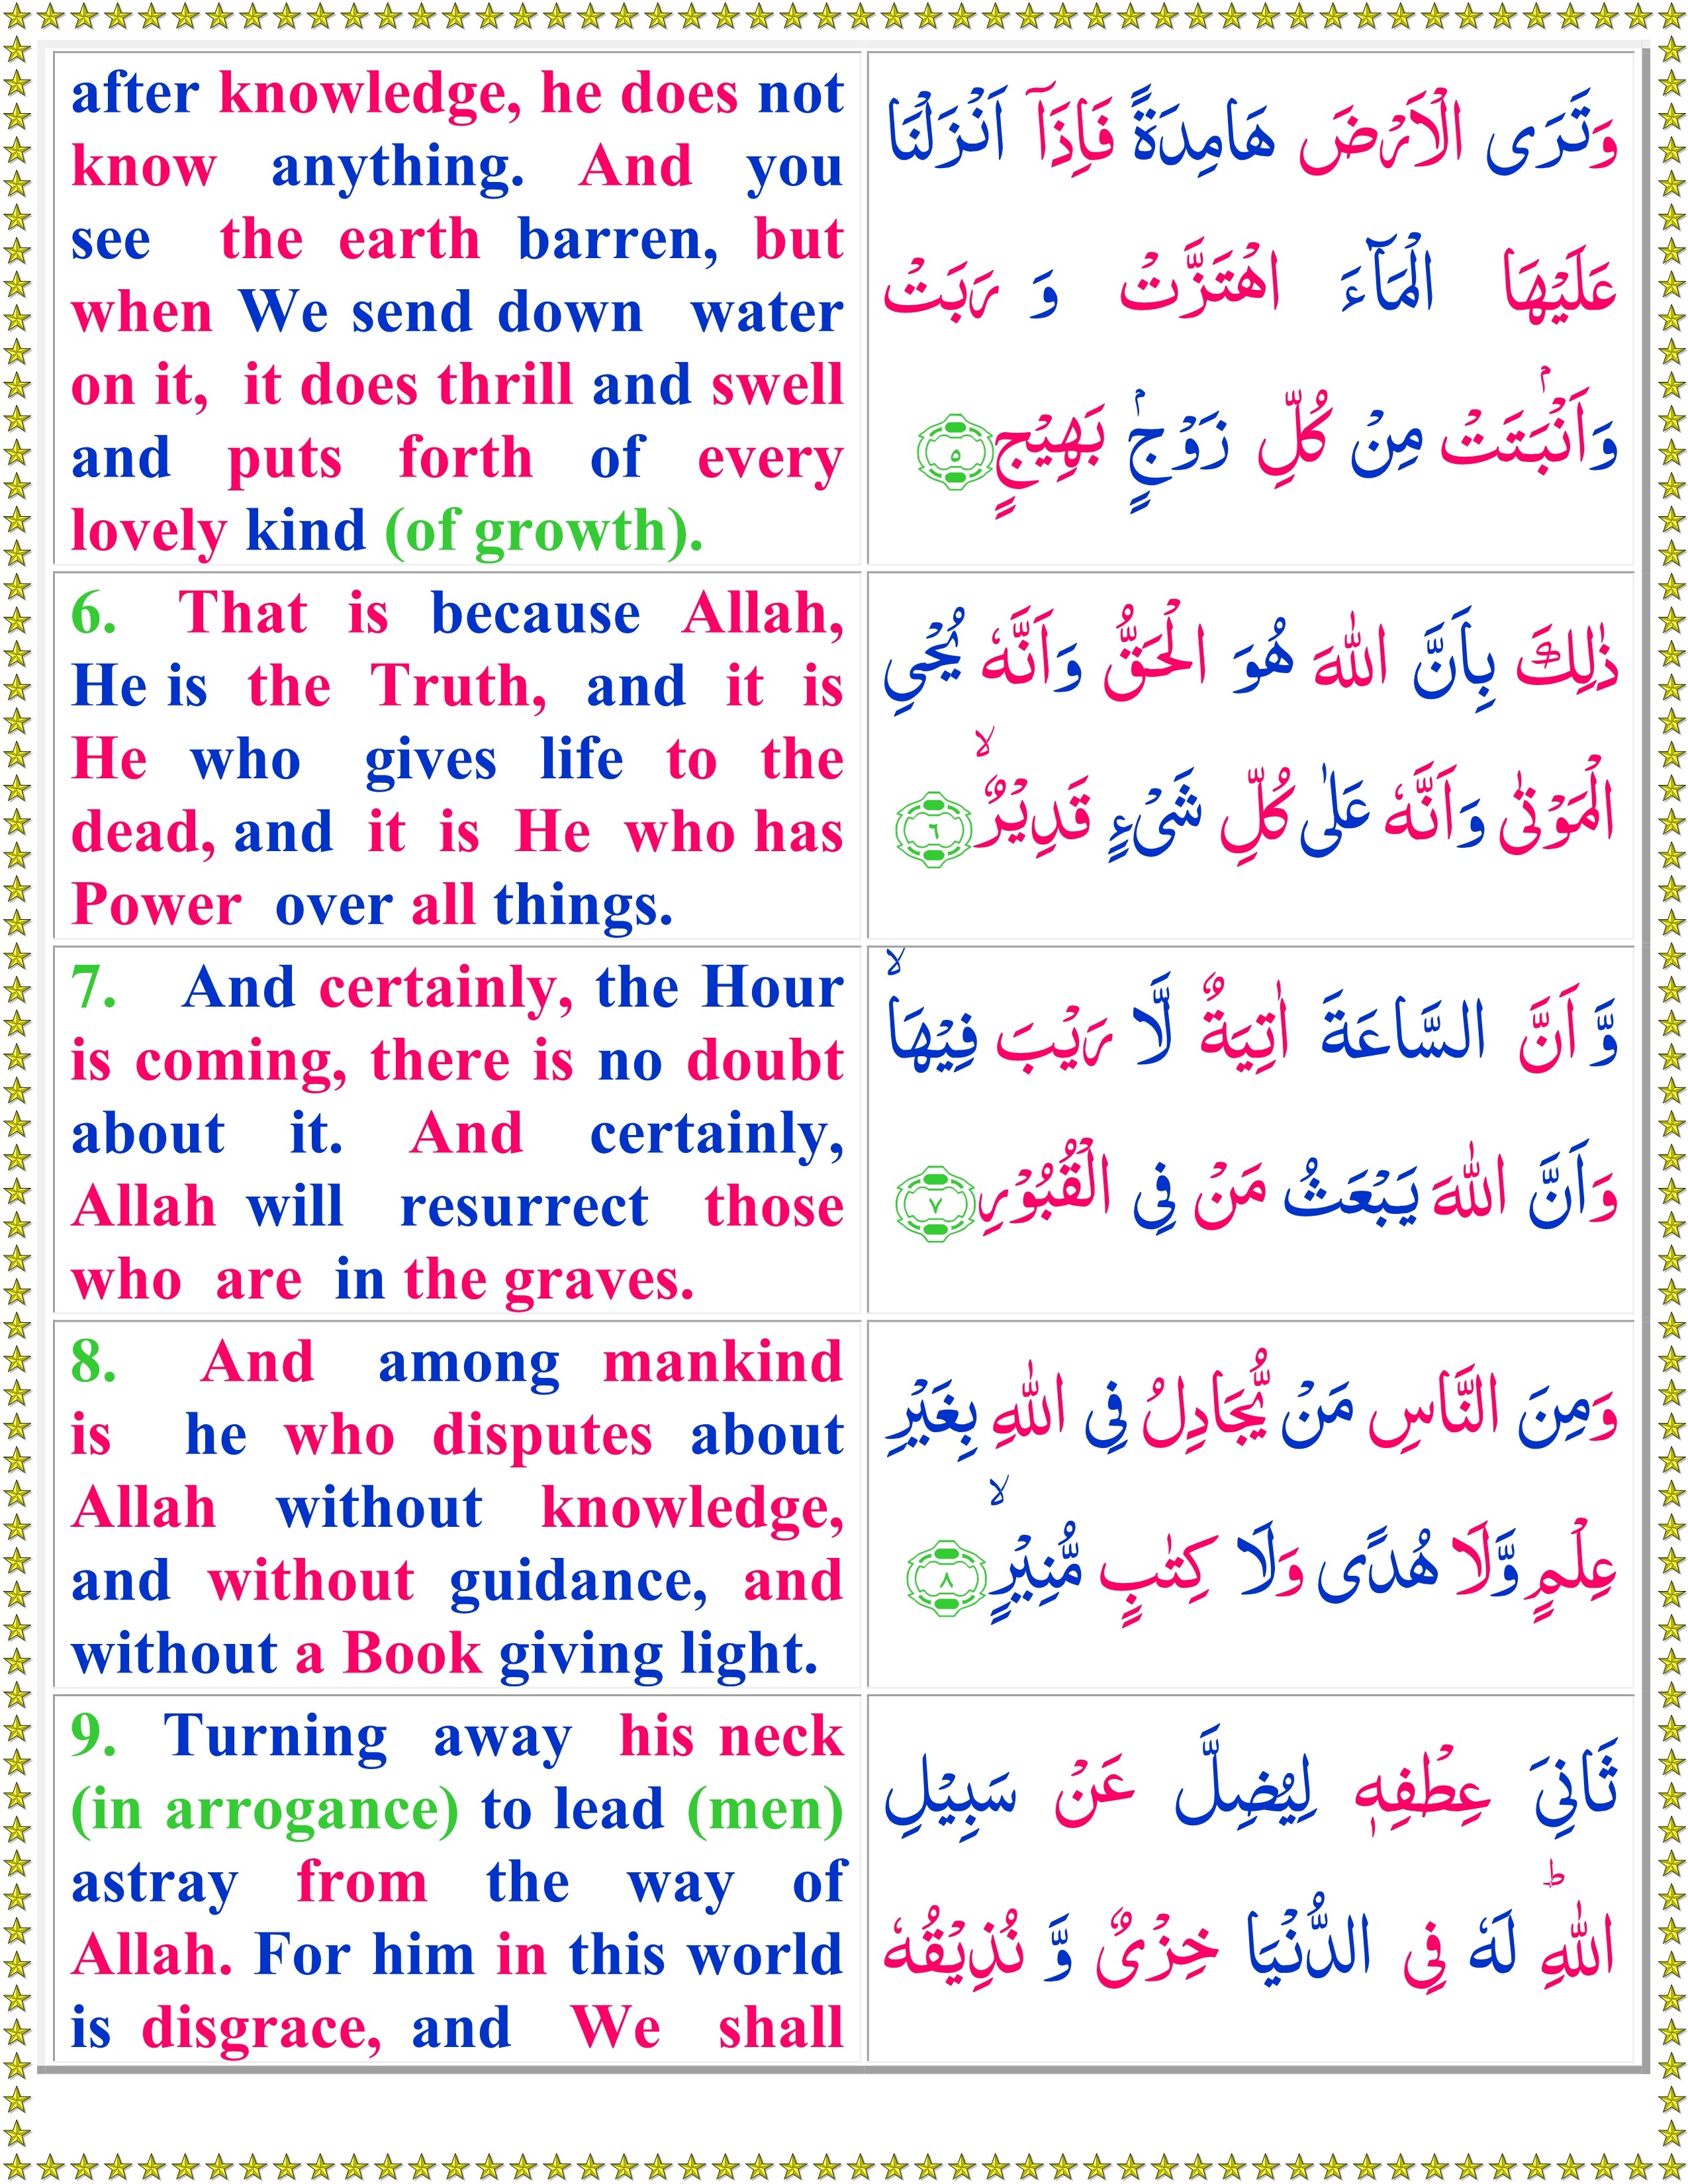 after knowledge, he does not
know anything. And you
see the earth barren, but
when We send down water
on it, it does thrill and swell
and puts forth of every
lovely kind (of growth).
وَتَرَى الْاَرْضَ هَامِدَةً فَاِذَاۤ اَنْزَلْنَا
عَلَيْهَا الْمَآءَ اهْتَزَّتْ وَ رَبَتْ
وَاَنْۢبَتَتْ مِنْ كُلِّ زَوْجٍۢ بَهِيْجٍ ٥
6. That is because Allah,
He is the Truth, and it is
He who gives life to the
dead, and it is He who has
Power over all things.
ذٰلِكَ بِاَنَّ اللّٰهَ هُوَ الْحَقُّ وَاَنَّهٗ يُحْيِ
الْمَوْتٰى وَاَنَّهٗ عَلٰى كُلِّ شَىْءٍ قَدِيْرٌ ۙ ٦
7. And certainly, the Hour
is coming, there is no doubt
about it. And certainly,
Allah will resurrect those
who are in the graves.
وَّ اَنَّ السَّاعَةَ اٰتِيَةٌ لَّا رَيْبَ فِيْهَا ۙ
وَاَنَّ اللّٰهَ يَبْعَثُ مَنْ فِى الْقُبُوْرِ ٧
8. And among mankind
is he who disputes about
Allah without knowledge,
and without guidance, and
without a Book giving light.
وَمِنَ النَّاسِ مَنْ يُّجَادِلُ فِى اللّٰهِ بِغَيْرِ
عِلْمٍ وَّلَا هُدًى وَلَا كِتٰبٍ مُّنِيْرٍ ۙ ٨
9. Turning away his neck
(in arrogance) to lead (men)
astray from the way of
Allah. For him in this world
is disgrace, and We shall
ثَانِىَ عِطْفِهٖ لِيُضِلَّ عَنْ سَبِيْلِ
اللّٰهِ ؕ لَهٗ فِى الدُّنْيَا خِزْىٌ وَّ نُذِيْقُهٗ